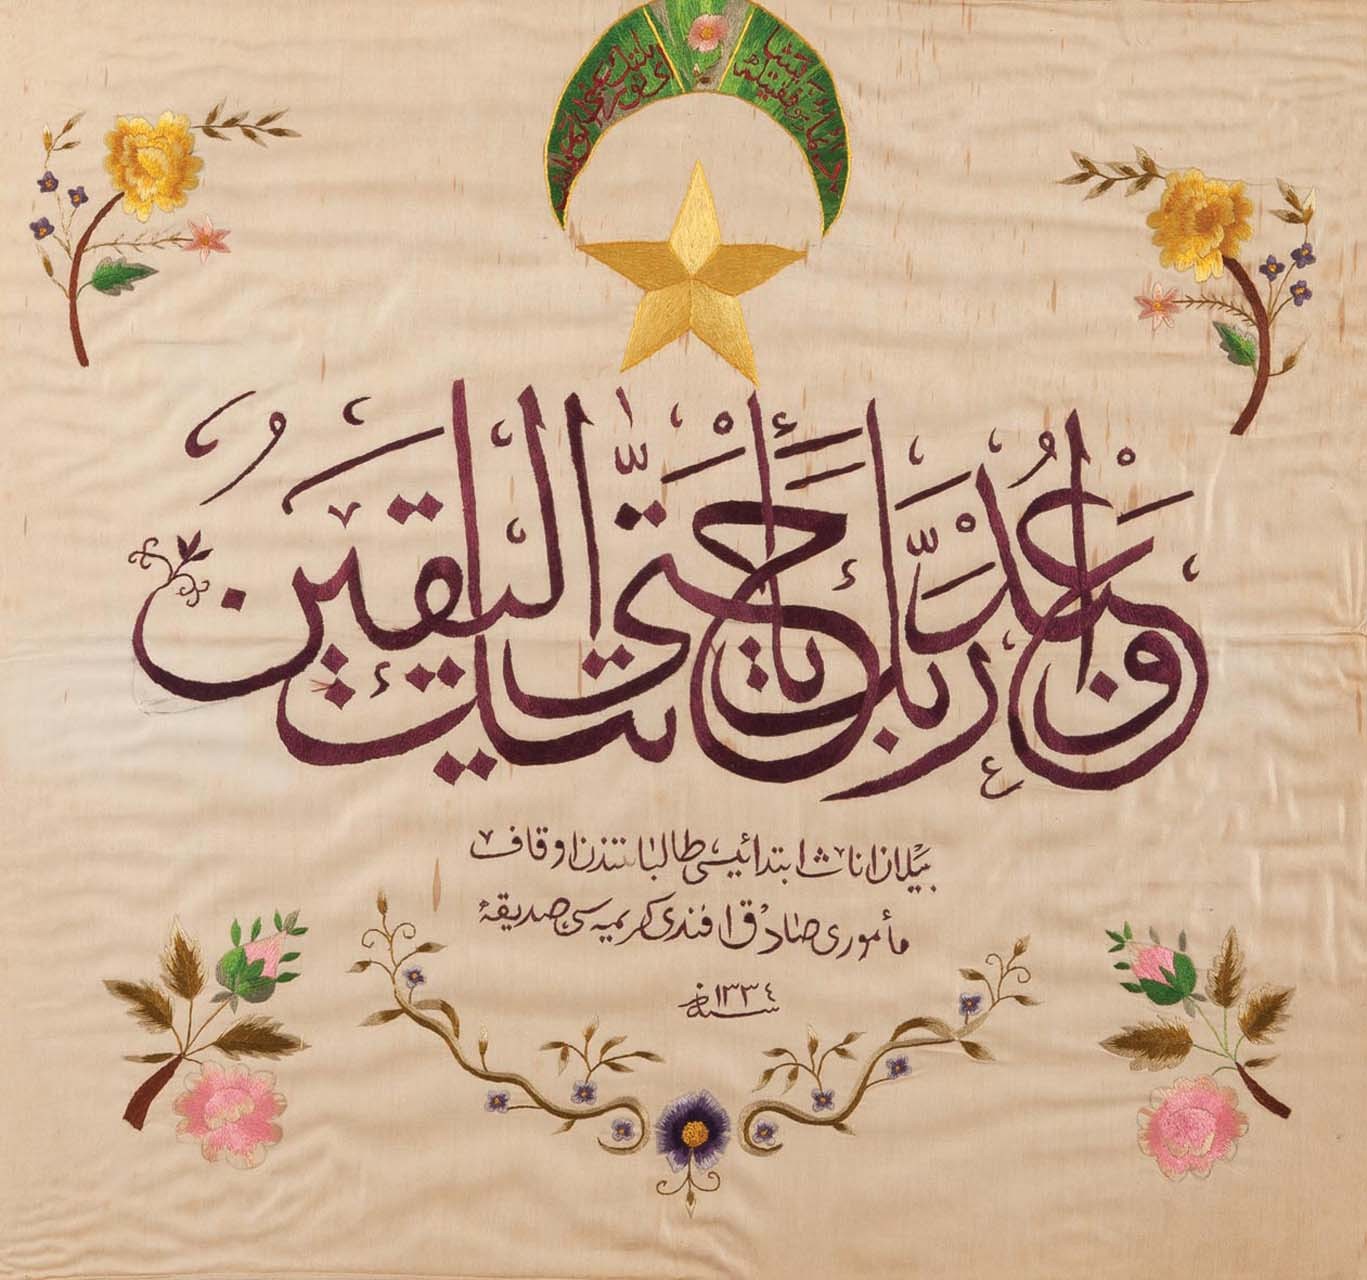 وَاعْبُدْ رَبَّكَ حَتَّى يَأْتِيَكَ الْيَقِينُ
بيلان اناث ابتدائيسى طالباتندن اوقاف
مأمورى صادق افندى كريمه سى صديقه
سنه ١٣٣٤